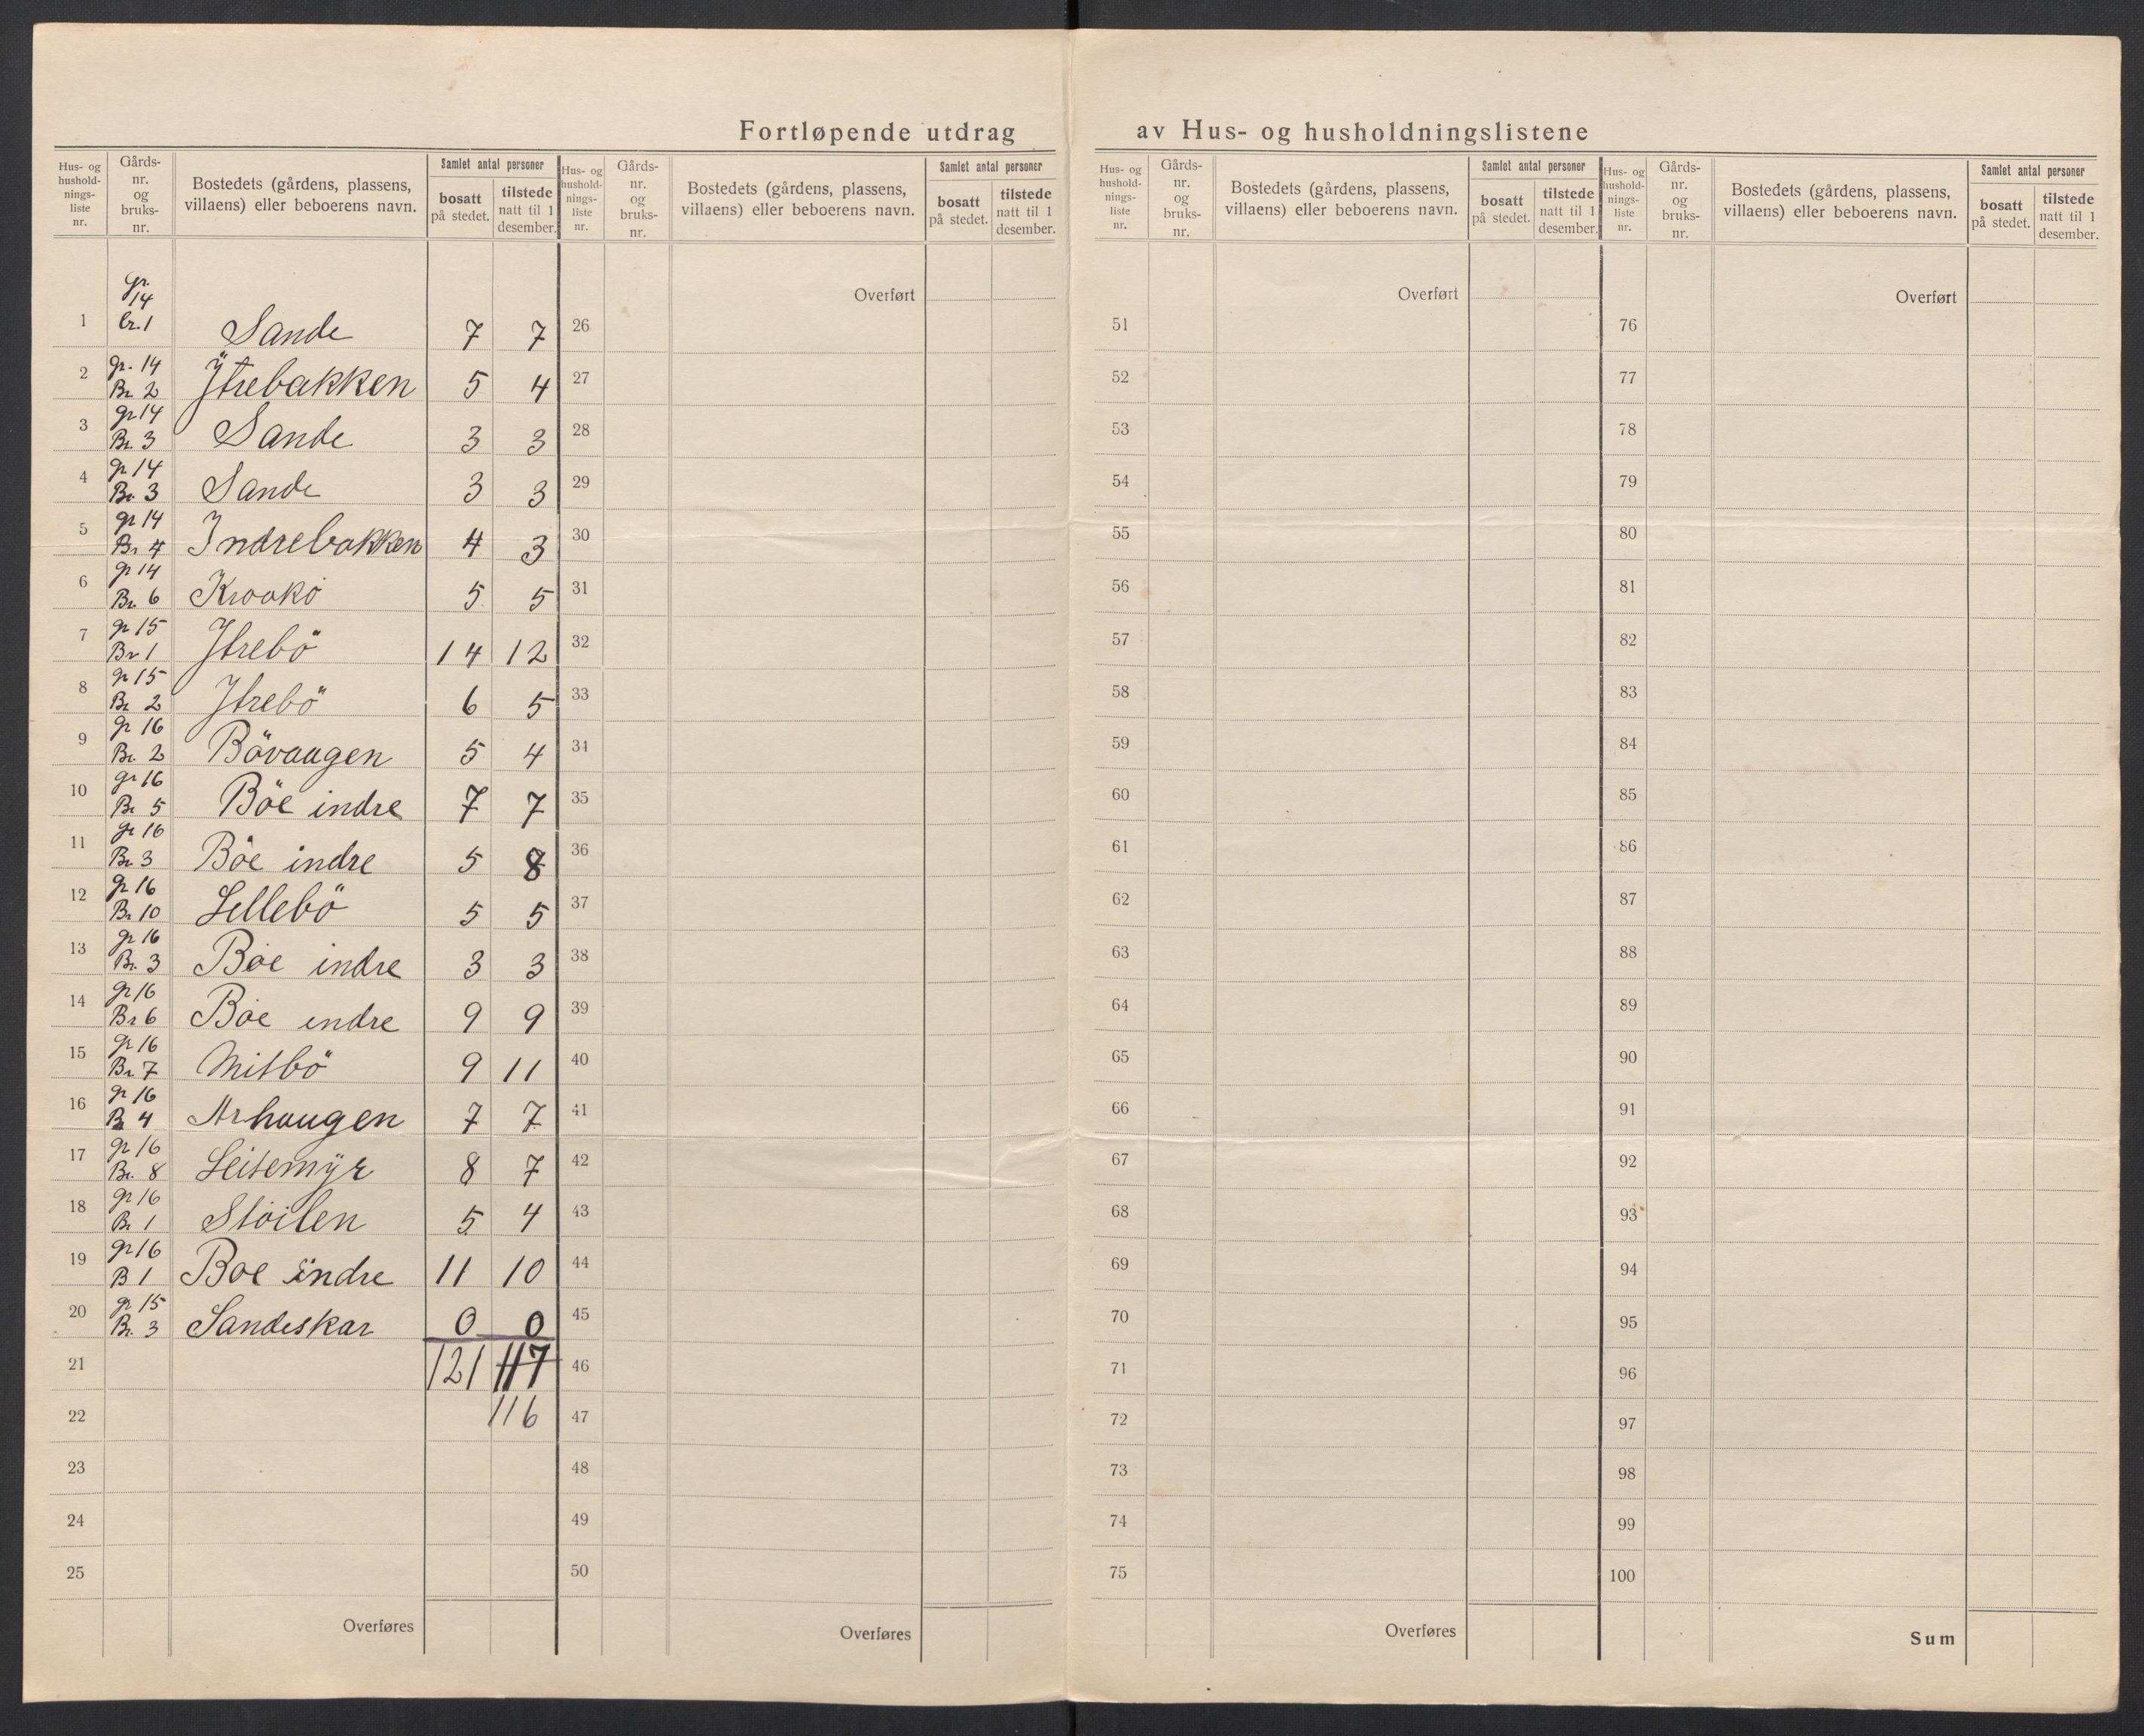 Fortløpende utdrag av Hus- og husholdningslistene
Hus- og hushold-nings-liste nr. | Gårds-nr. og bruks-nr. | Bostedets (gårdens, plassens, villaens) eller beboerens navn. | Samlet antal personer bosatt på stedet. | tilstede natt til 1 desember.
1 | gr. 14 br. 1 | Sande | 7 | 7
2 | gr. 14 Br. 2 | Ÿtrebakken | 5 | 4
3 | gr 14 Br. 3 | Sande | 3 | 3
4 | gr 14 Br. 3 | Sande | 3 | 3
5 | gr 14 Br 4 | Indrebakken | 4 | 3
6 | gr 14 Br. 6 | Krookö | 5 | 5
7 | gr 15 Br 1 | Ytrebö | 14 | 12
8 | gr 15 Br 2 | Ytrebö | 6 | 5
9 | gr 16 Br. 2 | Bövaagen | 5 | 4
10 | gr 16 Br 5 | Böe indre | 7 | 7
11 | gr 16 Br. 3 | Böe indre | 5 | 8
12 | gr 16 Br 10 | Lellebö | 5 | 5
13 | gr 16 Br. 3 | Böe indre | 3 | 3
14 | gr 16 Br 6 | Böe indre | 9 | 9
15 | gr 16 Br. 7 | Mitbö | 9 | 11
16 | gr 16 Br 4 | Arhaugen | 7 | 7
17 | gr 16 Br. 8 | Leitemÿr | 8 | 7
18 | gr 16 Br 1 | Stöilen | 5 | 4
19 | gr 16 B 1 | Böe indre | 11 | 10
20 | gr 15 Br. 3 | Sandeskar | 0 | 0
21 | 121 | 117
22 | 116
23
24
25
Overføres
Hus- og hushold-nings-liste nr. | Gårds-nr. og bruks-nr. | Bostedets (gårdens, plassens, villaens) eller beboerens navn. | Samlet antal personer bosatt på stedet. | tilstede natt til 1 desember.
Overført
26
27
28
29
30
31
32
33
34
35
36
37
38
39
40
41
42
43
44
45
46
47
48
49
50
Overføres
Hus- og hushold-nings-liste nr. | Gårds-nr. og bruks-nr. | Bostedets (gårdens, plassens, villaens) eller beboerens navn. | Samlet antal personer bosatt på stedet. | tilstede natt til 1 desember.
Overført
51
52
53
54
55
56
57
58
59
60
61
62
63
64
65
66
67
68
69
70
71
72
73
74
75
Overføres
Hus- og hushold-nings-liste nr. | Gårds-nr. og bruks-nr. | Bostedets (gårdens, plassens, villaens) eller beboerens navn. | Samlet antal personer bosatt på stedet. | tilstede natt til 1 desember.
Overført
76
77
78
79
80
81
82
83
84
85
86
87
88
89
90
91
92
93
94
95
96
97
98
99
100
Sum